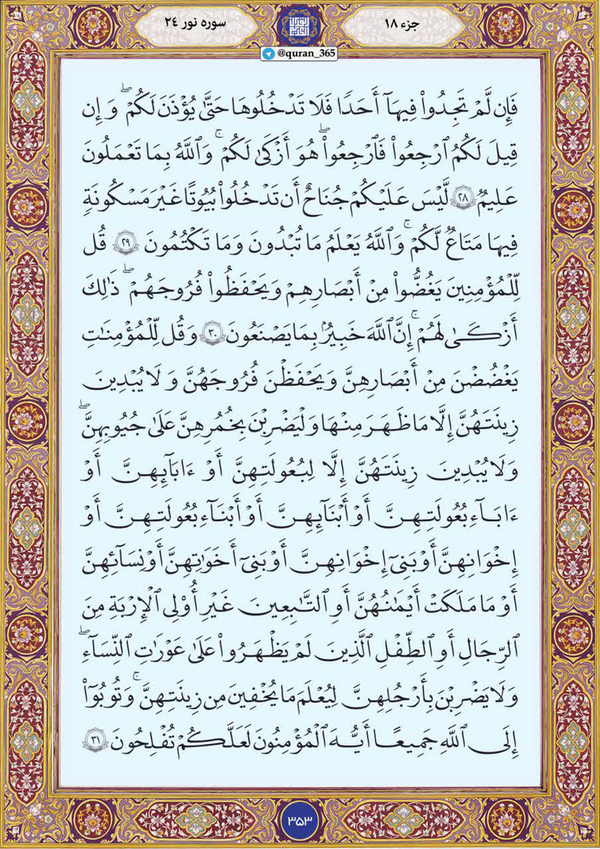 جزء ۱۸
سوره نور ۲۴
@quran_365
فَإِن لَّمْ تَجِدُوا۟ فِيهَآ أَحَدًا فَلَا تَدْخُلُوهَا حَتَّىٰ يُؤْذَنَ لَكُمْ ۖ وَإِن
قِيلَ لَكُمُ ٱرْجِعُوا۟ فَٱرْجِعُوا۟ ۖ هُوَ أَزْكَىٰ لَكُمْ ۚ وَٱللَّهُ بِمَا تَعْمَلُونَ
عَلِيمٌ ۝٢٨ لَّيْسَ عَلَيْكُمْ جُنَاحٌ أَن تَدْخُلُوا۟ بُيُوتًا غَيْرَ مَسْكُونَةٍ
فِيهَا مَتَاعٌ لَّكُمْ ۚ وَٱللَّهُ يَعْلَمُ مَا تُبْدُونَ وَمَا تَكْتُمُونَ ۝٢٩ قُل
لِّلْمُؤْمِنِينَ يَغُضُّوا۟ مِنْ أَبْصَارِهِمْ وَيَحْفَظُوا۟ فُرُوجَهُمْ ۚ ذَٰلِكَ
أَزْكَىٰ لَهُمْ ۗ إِنَّ ٱللَّهَ خَبِيرٌۢ بِمَا يَصْنَعُونَ ۝٣٠ وَقُل لِّلْمُؤْمِنَٰتِ
يَغْضُضْنَ مِنْ أَبْصَارِهِنَّ وَيَحْفَظْنَ فُرُوجَهُنَّ وَلَا يُبْدِينَ
زِينَتَهُنَّ إِلَّا مَا ظَهَرَ مِنْهَا وَلْيَضْرِبْنَ بِخُمُرِهِنَّ عَلَىٰ جُيُوبِهِنَّ ۖ
وَلَا يُبْدِينَ زِينَتَهُنَّ إِلَّا لِبُعُولَتِهِنَّ أَوْ ءَابَآئِهِنَّ أَوْ
ءَابَآءِ بُعُولَتِهِنَّ أَوْ أَبْنَآئِهِنَّ أَوْ أَبْنَآءِ بُعُولَتِهِنَّ أَوْ
إِخْوَٰنِهِنَّ أَوْ بَنِىٓ إِخْوَٰنِهِنَّ أَوْ بَنِىٓ أَخَوَٰتِهِنَّ أَوْ نِسَآئِهِنَّ
أَوْ مَا مَلَكَتْ أَيْمَٰنُهُنَّ أَوِ ٱلتَّٰبِعِينَ غَيْرِ أُو۟لِى ٱلْإِرْبَةِ مِنَ
ٱلرِّجَالِ أَوِ ٱلطِّفْلِ ٱلَّذِينَ لَمْ يَظْهَرُوا۟ عَلَىٰ عَوْرَٰتِ ٱلنِّسَآءِ ۖ
وَلَا يَضْرِبْنَ بِأَرْجُلِهِنَّ لِيُعْلَمَ مَا يُخْفِينَ مِن زِينَتِهِنَّ ۚ وَتُوبُوٓا۟
إِلَى ٱللَّهِ جَمِيعًا أَيُّهَ ٱلْمُؤْمِنُونَ لَعَلَّكُمْ تُفْلِحُونَ ۝٣١
۳۵۳